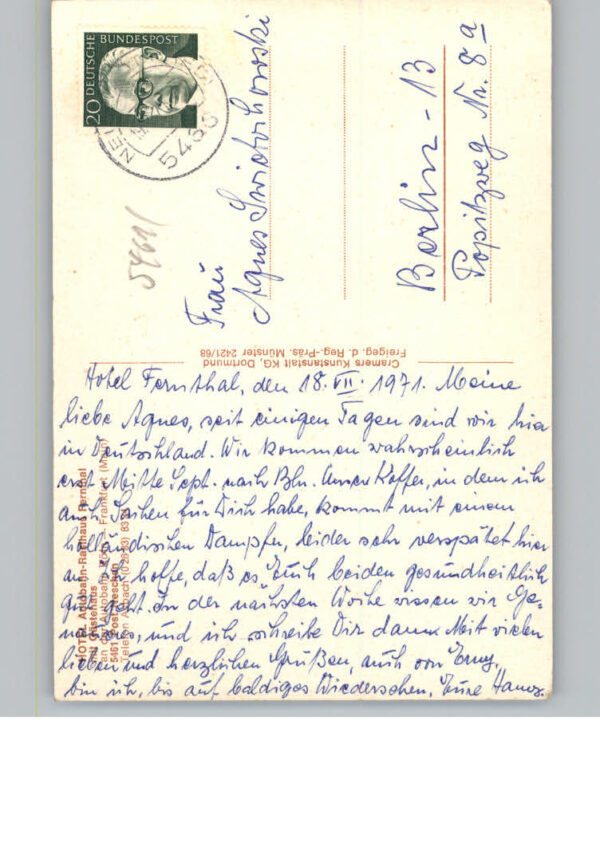 20 DEUTSCHE BUNDESPOST
5461/
Frau
Agnes
Berlin - 13
Popitzweg Nr. 8a
Cramers Kunstanstalt KG, Dortmund
Freigeg. d. Reg.-Präs. Münster 2421/68
Hotel Fernthal, den 18. VII. 1971. Meine
liebe Agnes, seit einigen Tagen sind wir hier
in Deutschland. Wir kommen wahrscheinlich
erst Mitte Sept. nach Bln. Unser Koffer, in dem ich
auch Sachen für Dich habe, kommt mit einem
holländischen Dampfer, leider sehr verspätet hier
an. Ich hoffe, daß es Euch beiden gesundheitlich
gut geht. In der nächsten Woche wissen wir Ge-
naueres, und ich schreibe Dir dann. Mit vielen
lieben und herzlichen Grüßen, auch von
bin ich, bis auf baldiges Wiedersehen, Eure
HOTEL Autobahn-Rasthaus Fernthal
mit Gästehaus
an der Autobahn Köln - Frankfurt (Main)
5461 Post
Telefon